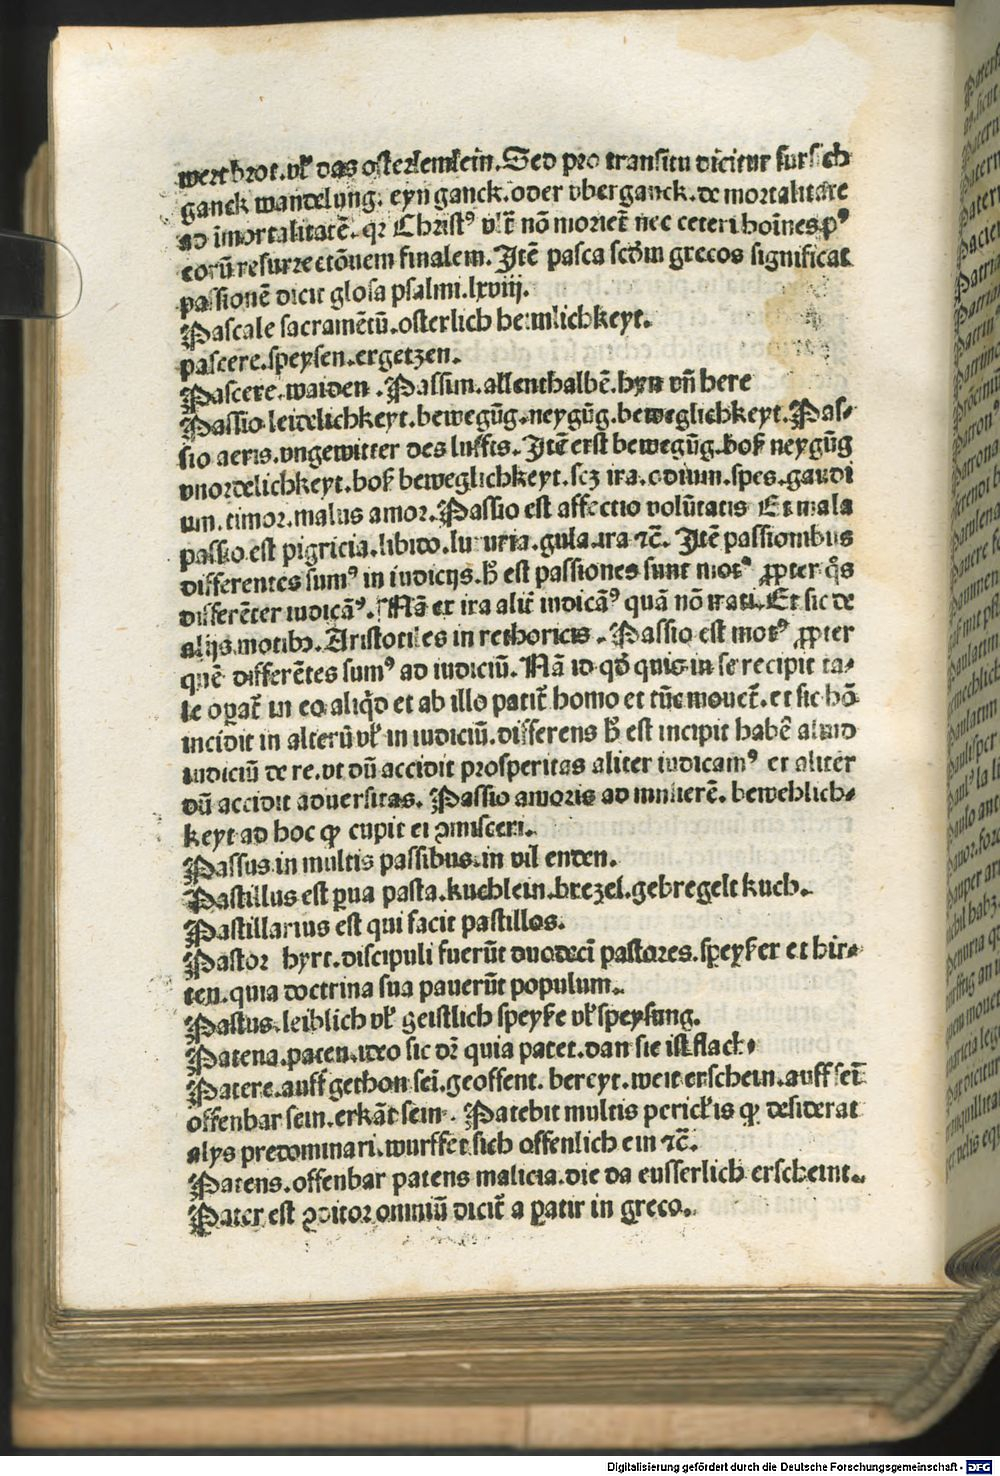 wert brot. vł das osterlemlein. Sed pro transitu dicitur fursich
ganck wandelung. eyn ganck. oder vberganck. de mortalitate
ad īmortalitatē. qꝛ Christꝰ vltͥ nō morietͬ nec ceteri hoīnes pꝰ
eorū resurrectōnem finalem. Itē pasca scd̄m grecos significat
passionē dicit glosa psalmi. lxviij.
Pascale sacramētū. osterlich heimlichkeyt.
pascere. speysen. ergetzen.
Pascere. waiden. Passim. allenthalbē. hyn vn̄ here
Passio leidelichkeyt. bewegūg. neygūg. beweglichkeyt. Pas⸗
sio aeris. vngewitter des luffts. Itē erst bewegūg. boß neygūg
vnordelichkeyt. boß beweglichkeyt. scꝫ ira. odium. spes. gaudi
um. timor. malus amor. Passio est affectio volūtatis Et mala
passio est pigricia. libido. luxuria. gula. ira ⁊c̄. Itē passionibus
differentes sumꝰ in iudicijs. h̄ est passiones sunt motꝰ ꝓpter q̄s
differēter iudicāꝰ. Nā ex ira alitͬ iudicāꝰ quā nō irati. Et sic de
alijs motibꝫ. Aristotiles in rethoricis. Passio est motꝰ ꝓpter
quē differētes sumꝰ ad iudiciū. Nā id qd̄ quis in se recipit ta⸗
le oꝑatͬ in eo aliqd̄ et ab illo patitͬ homo et tūc mouetͬ. et sic hō
incidit in alterū vł in iudiciū. differens h̄ est incipit habē aliud
iudiciū de re. vt dū accidit prosperitas aliter iudicamꝰ et aliter
dū accidit aduersitas. Passio amoris ad mulierē. beweblich⸗
keyt ad hoc ꝙ cupit ei ꝯmisceri.
Passus. in multis passibus. in vil enden.
Pastillus est ꝑua pasta. kuchlein. brezel. gebregelt kuch.
Pastillarius est qui facit pastillos.
Pastor hyrt. discipuli fuerūt duodeci pastores. speyßer et hir⸗
ten. quia doctrina sua pauerūt populum.
Pastus. leiblich vł geistlich speyße vł speysung.
Patena. paten. ideo sic dꝛ quia patet. dan sie ist flach.
Patere. auff gethon sei. geoffent. bereyt. weit erschein. auff sei
offenbar sein. erkāt sein. Patebit multis pericłis ꝙ desiderat
alys predominari. wurffet sich offenlich ein ⁊c̄.
Patens. offenbar patens malicia. die da eusserlich erscheint.
Pater est ꝯditor omniū dicitͬ a patir in greco.
Digitalisierung gefördert durch die Deutsche Forschungsgemeinschaft - DFG